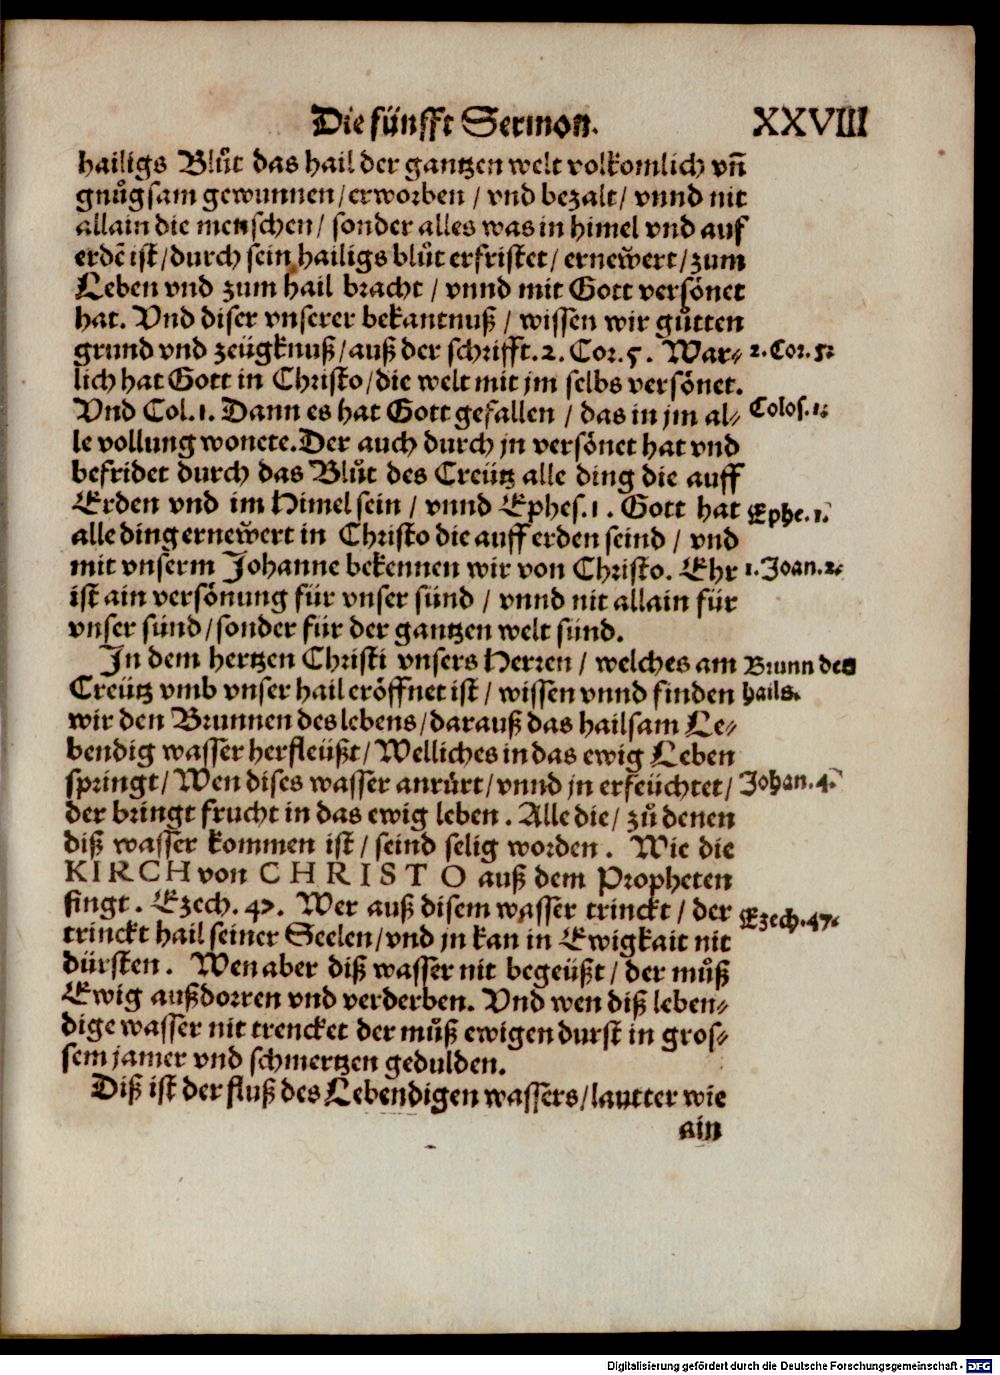 Die fünfft Sermon. XXVIII
hailigs Blůt das hail der gantzen welt volkomlich vñ
gnůgsam gewunnen/erworben / vnd bezalt/ vnnd nit
allain die menschen/ sonder alles was in himel vnd auf
erdẽ ist/durch sein hailigs blůt erfristet/ ernewert/zum
Leben vnd zum hail bracht / vnnd mit Gott versönet
hat. Vnd diser vnserer bekantnuß / wissen wir gůtten
grund vnd zeügknuß/auß der schrifft. 2. Cor. 5. War⸗
2. Cor. 5.
lich hat Gott in Christo/die welt mit jm selbs versönet.
Vnd Col. 1. Dann es hat Gott gefallen / das in jm al⸗
Colos. 1.
le vollung wonete. Der auch durch jn versönet hat vnd
befridet durch das Blůt des Creütz alle ding die auff
Erden vnd im Himel sein / vnnd Ephes. 1. Gott hat
Ephe. 1.
alle ding ernewert in Christo die auff erden seind / vnd
mit vnserm Johanne bekennen wir von Christo. Ehr
1. Joan. 2.
ist ain versönung für vnser sünd / vnnd nit allain für
vnser sünd/sonder für der gantzen welt sünd.
In dem hertzen Christi vnsers Herren/ welches am
Brunn des
Creütz vmb vnser hail eröffnet ist/ wissen vnnd finden
hails.
wir den Brunnen des lebens/darauß das hailsam Le⸗
bendig wasser herfleüßt/ Welliches in das ewig Leben
springt/Wen dises wasser anrůrt/vnnd jn erfeüchtet/
Johan. 4.
der bringt frucht in das ewig leben. Alle die/ zů denen
diß wasser kommen ist/ seind selig worden. Wie die
KIRCH von CHRISTO auß dem Propheten
singt. Ezech. 47. Wer auß disem wasser trinckt/ der
Ezech. 47.
trinckt hail seiner Seelen/vnd jn kan in Ewigkait nit
dürsten. Wen aber diß wasser nit begeüßt/ der můß
Ewig außdorren vnd verderben. Vnd wen diß leben⸗
dige wasser nit trencket der můß ewigen durst in gros⸗
sem jamer vnd schmertzen gedulden.
Diß ist der fluß des Lebendigen wassers/lautter wie
ain
Digitalisierung gefördert durch die Deutsche Forschungsgemeinschaft - DFG